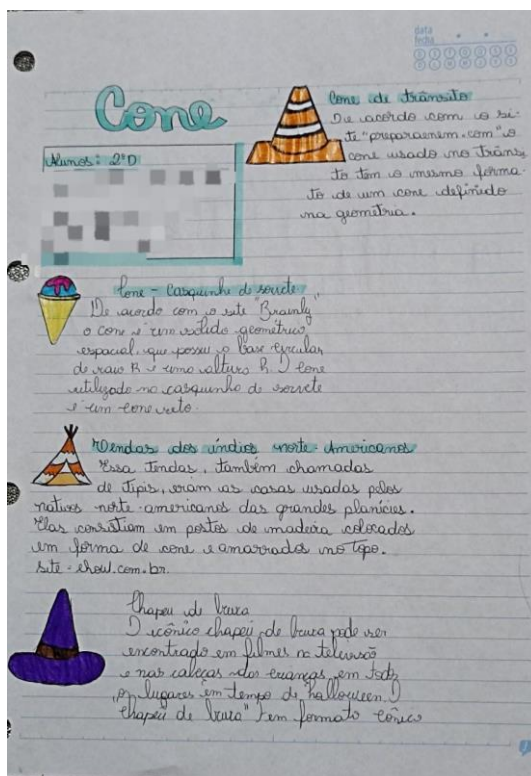 data
fecha
Cone
Alunos: 2°D
Cone de trânsito
De acordo com o si-
te "preparaenem.com" o
cone usado no trânsi
to tem o mesmo forma-
to de um cone definido
na geometria.
Cone - Casquinha de sorvete
De acordo com o site "Brainly"
o cone é um sólido geométrico
espacial, que possui a base circular
de raio R e uma altura h. O cone
utilizado na casquinha de sorvete
é um cone reto.
Tendas dos índios norte-Americanos
Essa Tendas, também chamadas
de Tipis, eram as casas usadas pelos
nativos norte-americanos das grandes planícies.
Elas consistiam em postes de madeira colocados
em forma de cone e amarrados no topo.
site-ehow.com.br.
Chapeu de bruxa
O icônico chapéu de bruxa pode ser
encontrado em filmes na televisão
e nas cabeças das crianças em
lugares em tempo de halloween. O
chapéu de bruxa" tem formato cônico